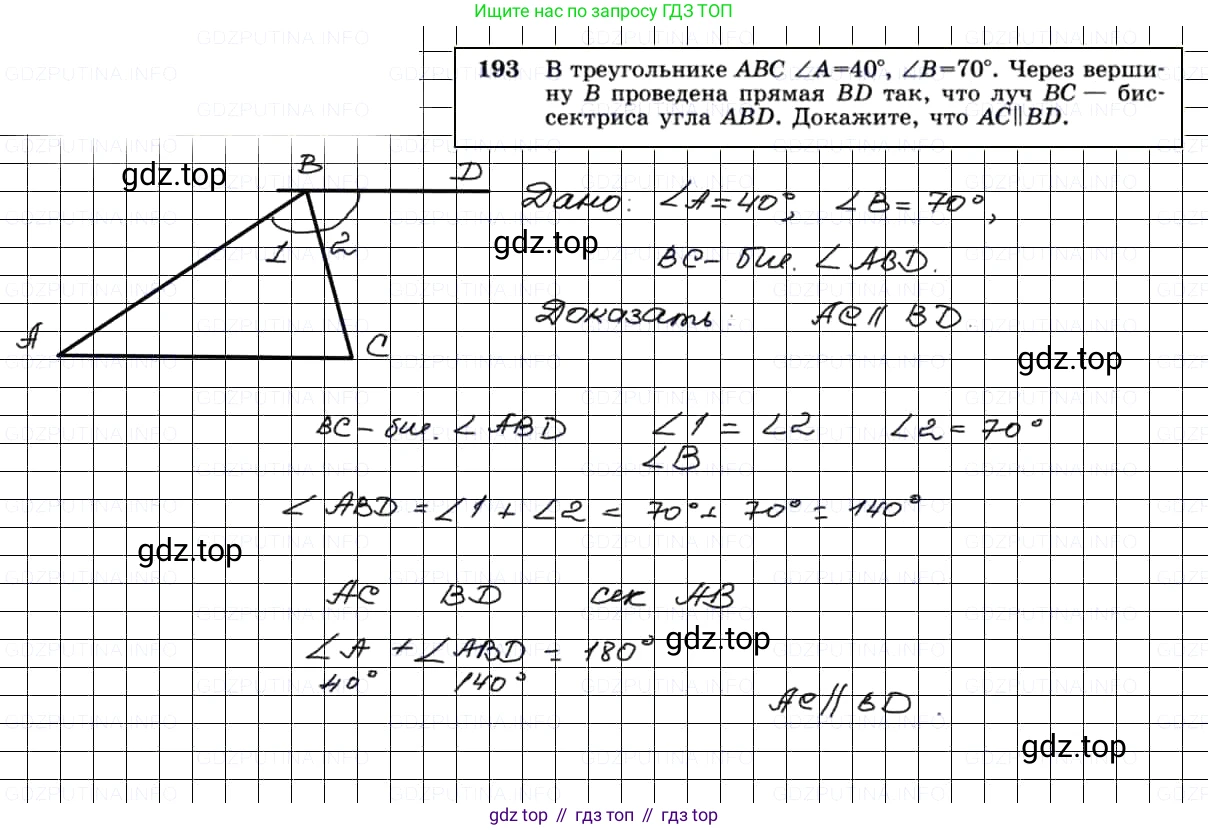 Ищите нас по запросу ГДЗ ТОП
193 В треугольнике ABC ∠A=40°, ∠B=70°. Через верши-
ну B проведена прямая BD так, что луч BC — бис-
сектриса угла ABD. Докажите, что AC∥BD.
gdz.top
B D
Дано: ∠A = 40°, ∠B = 70°,
1 2
gdz.top
BC – бис. ∠ABD.
Доказать: AC ∥ BD.
A C
gdz.top
BC – бис. ∠ABD ∠1 = ∠2 ∠2 = 70°
∠B
∠ABD = ∠1 + ∠2 = 70° + 70° = 140°
gdz.top
AC BD сек AB
∠A + ∠ABD = 180°
gdz.top
40° 140°
AC ∥ BD.
gdz.top
gdz top // гдз топ // gdz top
GDZPUTINA.INFO